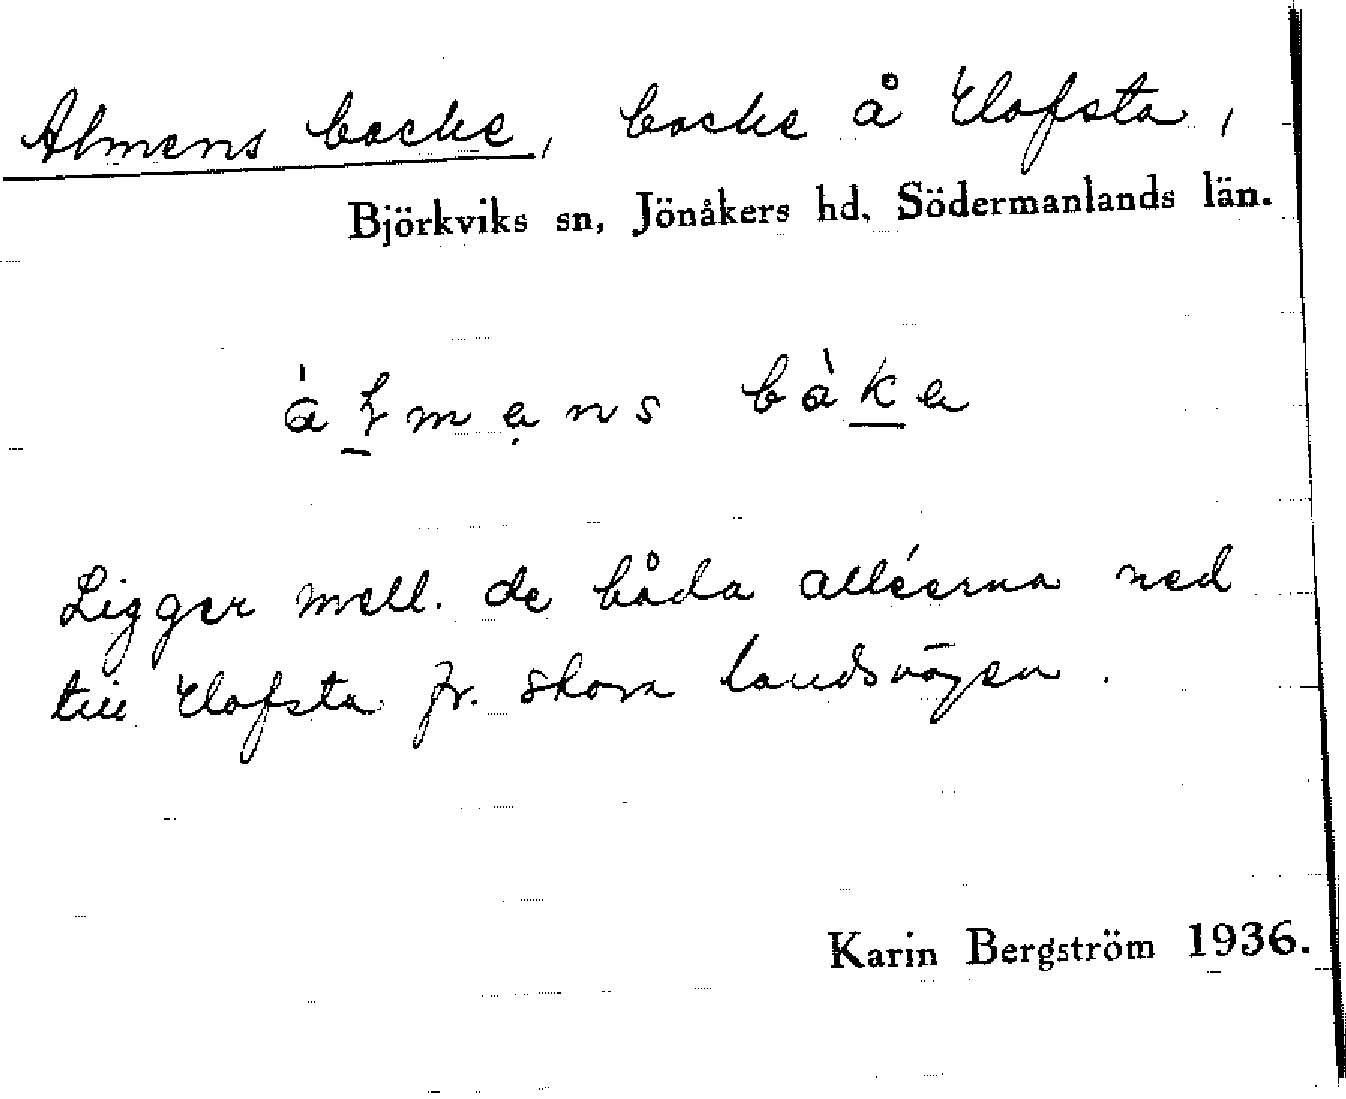 Almens backe, backe å Elofsta,
Björkviks sn, Jönåkers hd, Södermanlands län.
Ligger mell. de båda alléerna ned
till Elofsta fr. stora landsvägen.
Karin Bergström 1936.